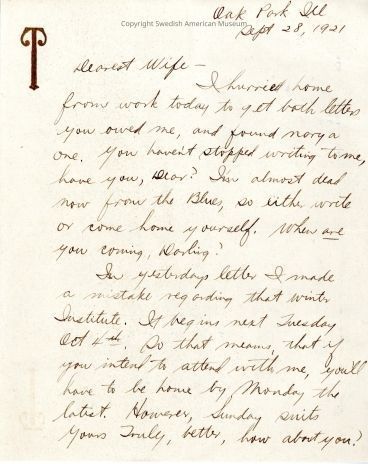 Oak Park Ill
Copyright Swedish American Museum
Sept 28, 1921
T
Dearest Wife –
I hurried home
from work today to get both letters
you owed me, and found nary a
one. You haven't stopped writing to me,
have you, Dear? I'm almost dead
now from the Blues, so either write
or come home yourself. When are
you coming, Darling?
In yesterdays letter I made
a mistake regarding that winter
Institute. It begins next Tuesday
Oct 4th. So that means, that if
you intend to attend with me, you'll
have to be home by Monday the
latest. However, Sunday suits
Yours Truly, better, how about you?